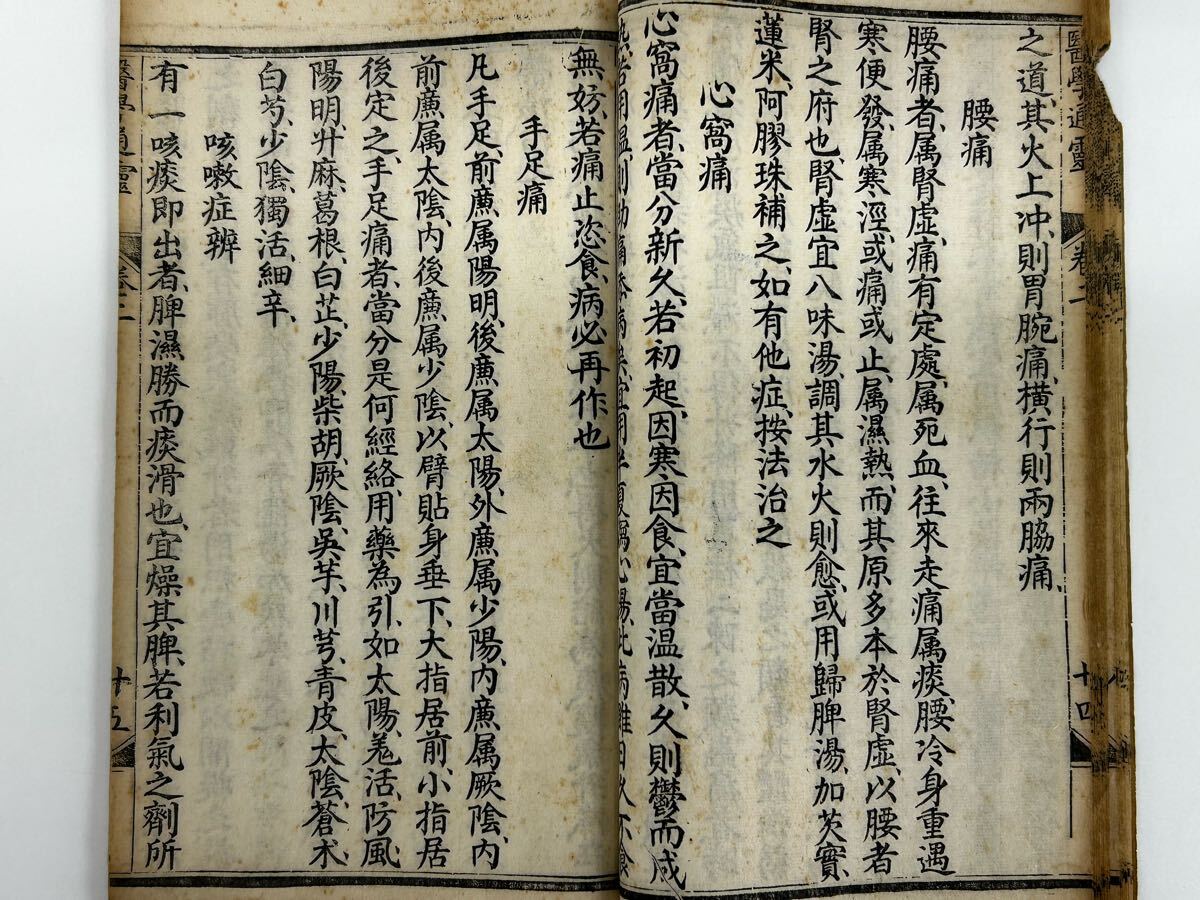 醫學通靈 卷二 十四
之道、其火上冲、則胃脘痛、橫行則兩脇痛、
腰痛
腰痛者、属腎虛、痛有定處、属死血、往來走痛属痰、腰冷身重、遇
寒便發、属寒溼、或痛或止、属濕熱、而其原多本於腎虛、以腰者
腎之府也、腎虛宜八味湯、調其水火則愈、或用歸脾湯、加芡實、
蓮米、阿膠珠補之、如有他症、按法治之
心窩痛
心窩痛者、當分新久、若初起、因寒、因食、宜當温散、久則鬱而成
熱、若用温、則助痛添病矣、宜用半夏瀉心湯、此病雖日久、不食
無妨、若痛止恣食、病必再作也
手足痛
凡手足、前亷属陽明、後亷属太陽、外亷属少陽、内亷属厥陰、内
前亷属太陰、内後亷属少陰、以臂貼身垂下、大指居前、小指居
後定之、手足痛者、當分是何經絡、用藥為引、如太陽、羗活、防風、
陽明、升麻、葛根、白芷、少陽、柴胡、厥陰、吳芋、川芎、青皮、太陰、蒼朮、
白芍、少陰、獨活、細辛、
咳嗽症辨
有一咳痰即出者、脾濕勝而痰滑也、宜燥其脾、若利氣之劑所
醫學通靈 卷二 十五